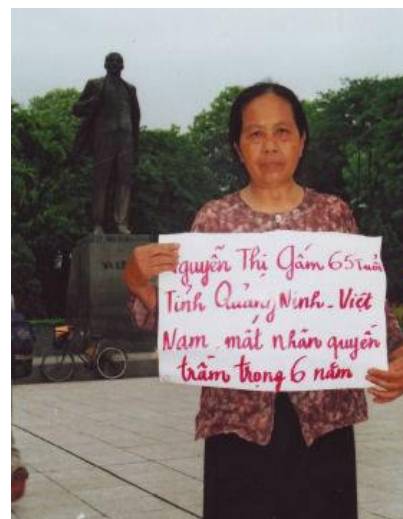 Nguyễn Thị Gấm 65 Tuổi
Tỉnh Quảng Ninh - Việt
Nam, mất nhân quyền
trầm trọng 6 năm